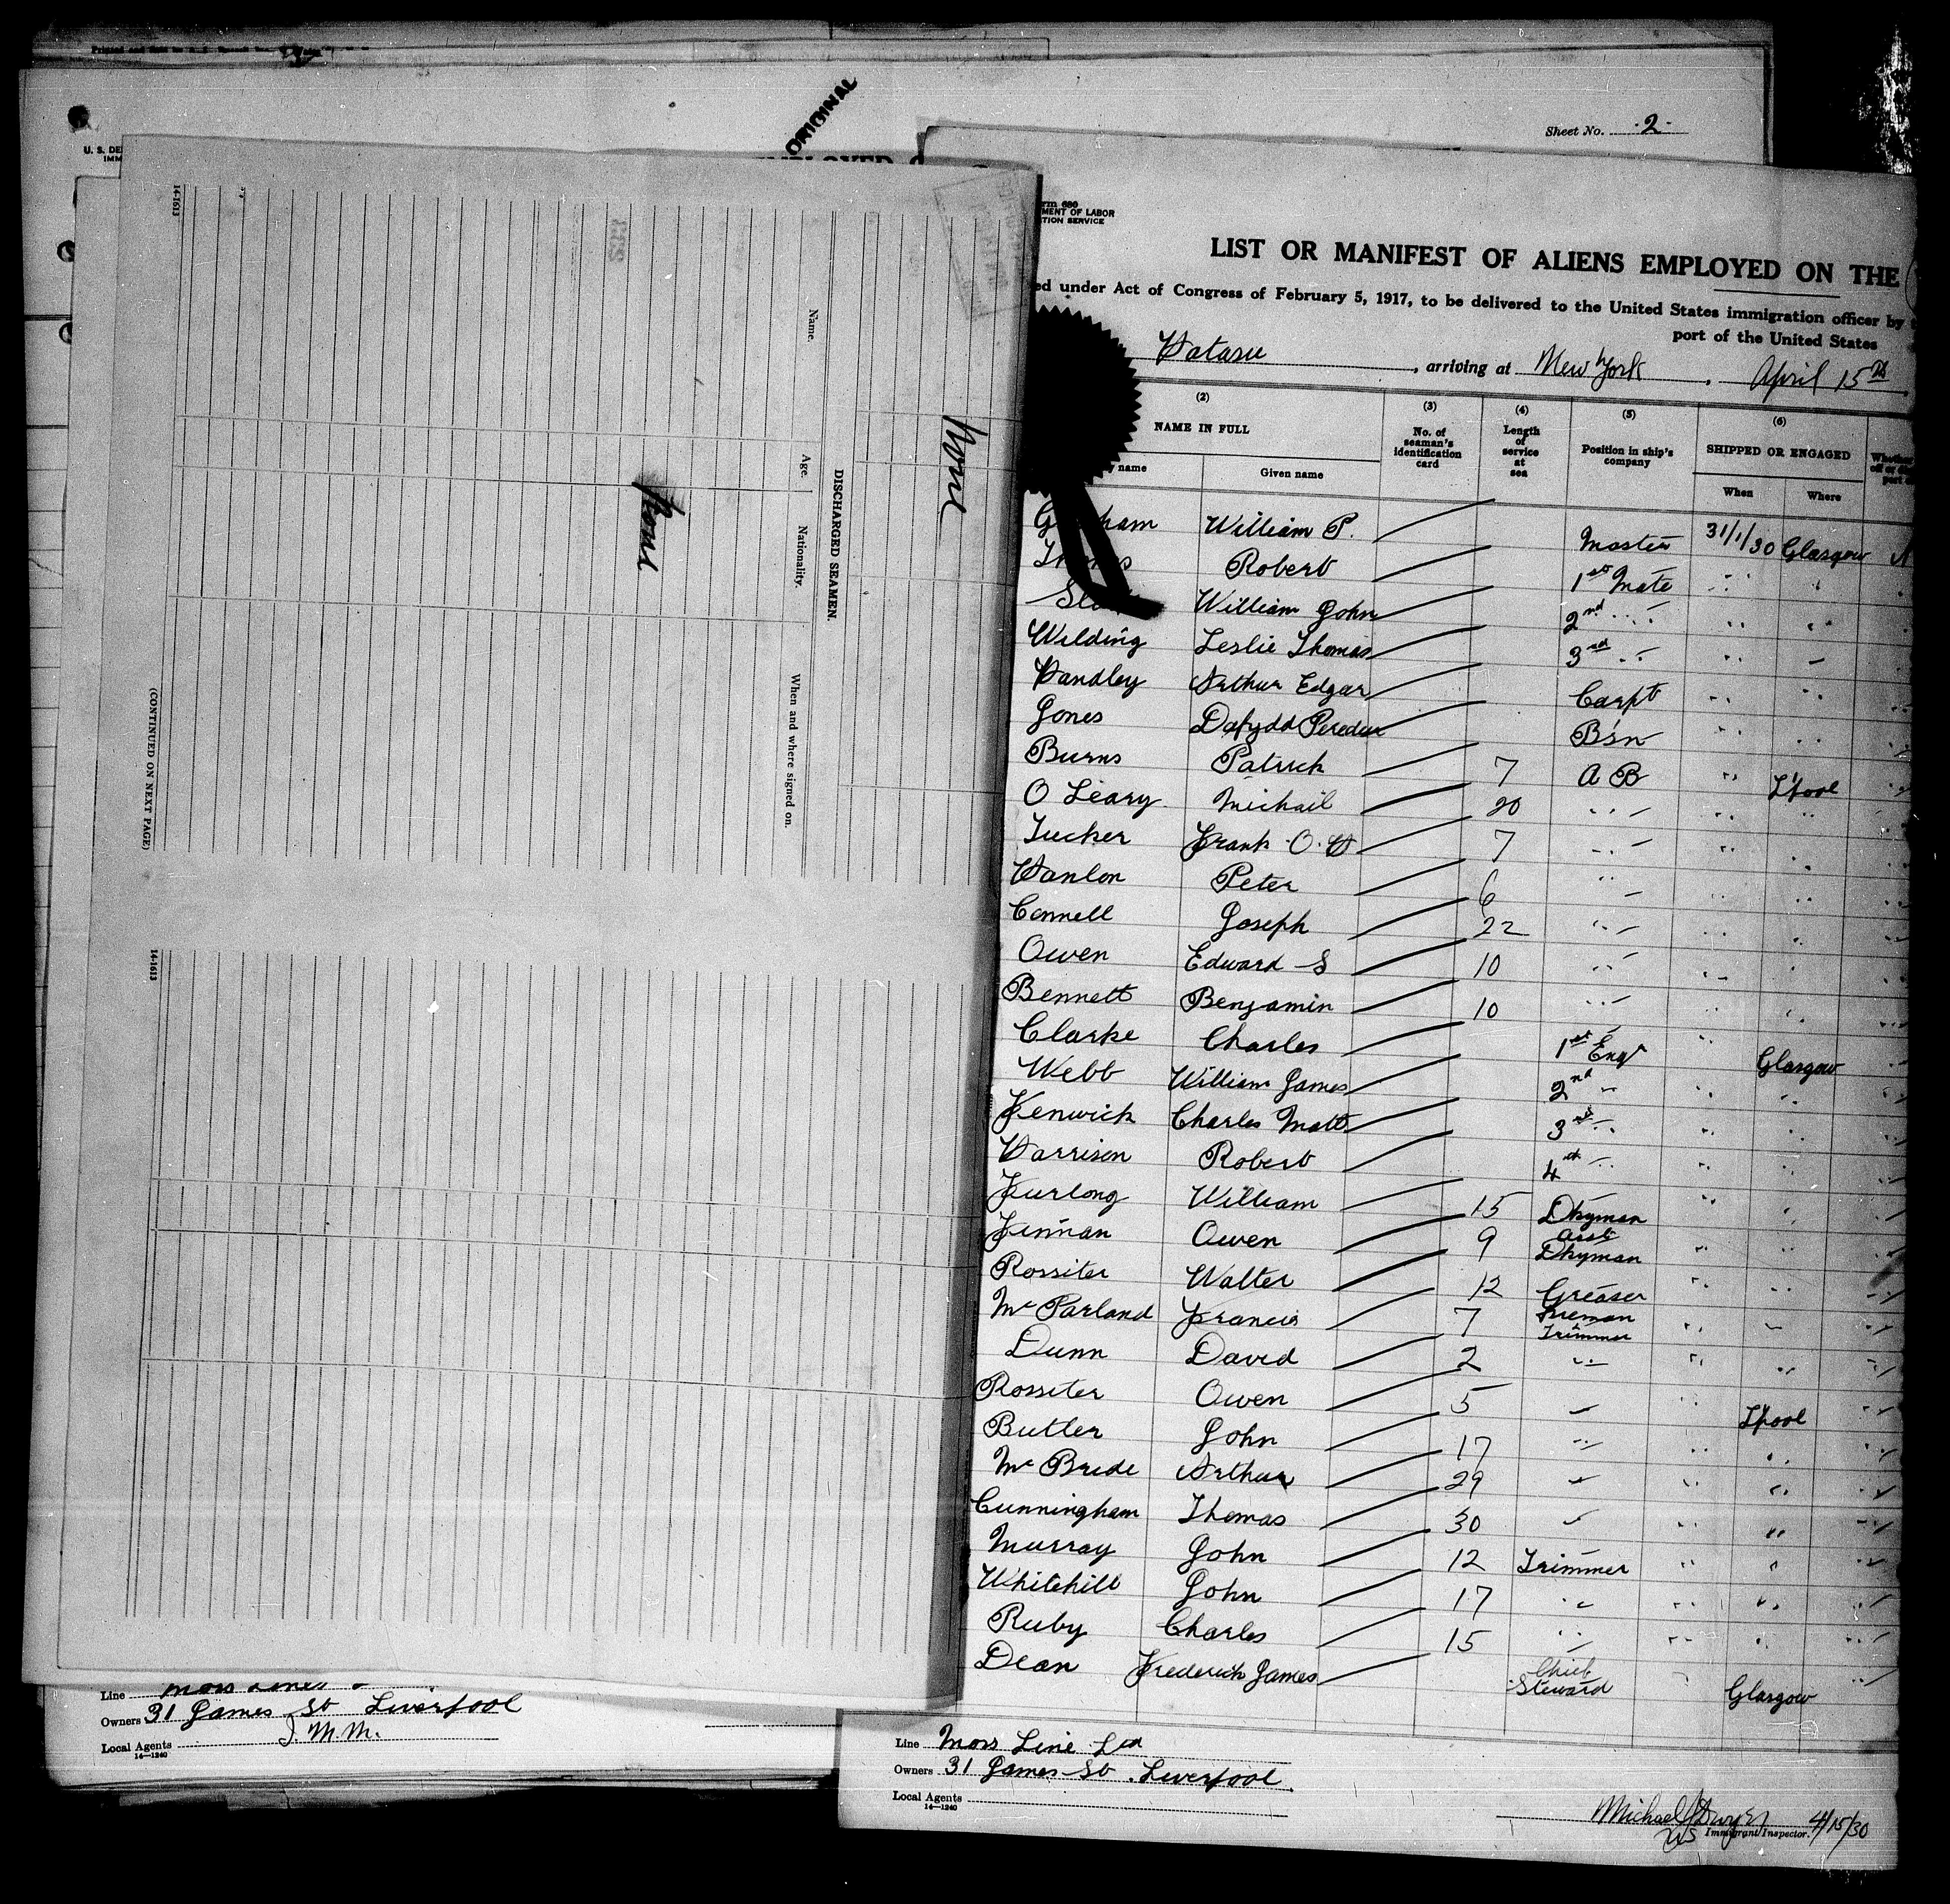 ORIGINAL
Sheet No. 2
14-1613
Name.
Age.
Nationality.
When and where signed on.
DISCHARGED SEAMEN.
(CONTINUED ON NEXT PAGE)
None
None
14-1613
Line Moss Line
Owners 31 James St Liverpool
Local Agents J. M. M.
14-1240
LIST OR MANIFEST OF ALIENS EMPLOYED ON THE
ed under Act of Congress of February 5, 1917, to be delivered to the United States immigration officer by
port of the United States
Hatasu, arriving at New York, April 15th
(2) (3) (4) (5) (6)
NAME IN FULL No. of seaman's identification card Length of service at sea Position in ship's company SHIPPED OR ENGAGED
name Given name When Where
William P. Master 31/1/30 Glasgow
Robert 1st Mate " "
William John 2nd " " "
Wilding Leslie Thomas 3rd " " "
Handley Arthur Edgar Carpt " "
Jones Dafydd Peredur Bsn " "
Burns Patrick 7 A B " L'pool
O Leary Michail 20 " " "
Tucker Frank O. H 7 " " "
Hanlon Peter 6 " " "
Connell Joseph 22 " " "
Owen Edward S 10 " " "
Bennett Benjamin 10 " " "
Clarke Charles 1st Engr " Glasgow
Webb William James 2nd " " "
Fenwick Charles Matt 3rd " " "
Harrison Robert 4th " " "
Furlong William 15 Dkyman " "
Finnan Owen 9 Asst Dkyman " "
Rossiter Walter 12 Greaser " "
Mc Parland Francis 7 Fireman Trimmer " "
Dunn David 2 " " "
Rossiter Owen 5 " " L'pool
Butler John 17 " " "
Mc Bride Arthur 29 " " "
Cunningham Thomas 30 " " "
Murray John 12 Trimmer " "
Whitehill John 17 " " "
Ruby Charles 15 " " "
Dean Frederick James Chief Steward Glasgow
Line Moss Line Ltd
Owners 31 James St. Liverpool.
Local Agents
14-1240
Michael J Dwyer 4/15/30
US Immigrant Inspector.